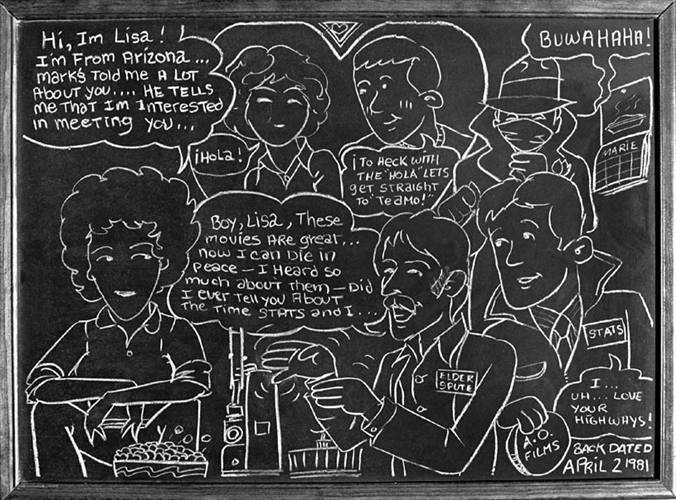 Hi, Im Lisa!
I'm From Arizona...
marks Told me A LOT
About you.... HE TELLS
me THAT Im Interested
in meeting you...
¡HOLa!
¡TO HECK WITH
THE "HOLA" LETS
get STRAIGHT
To "Te amo!"
BUWAHAHA!
MARIE
Boy, Lisa, These
movies Are great...
now I can Die in
Peace — I Heard so
much about them — Did
I ever tell you About
the Time STATS and I...
ELDER
SPUTE
STATS
I...
UH... LOVE
YOUR
HIGHWAYS!
A.O.
FILMS
BACK DATED
APRIL 2 1981